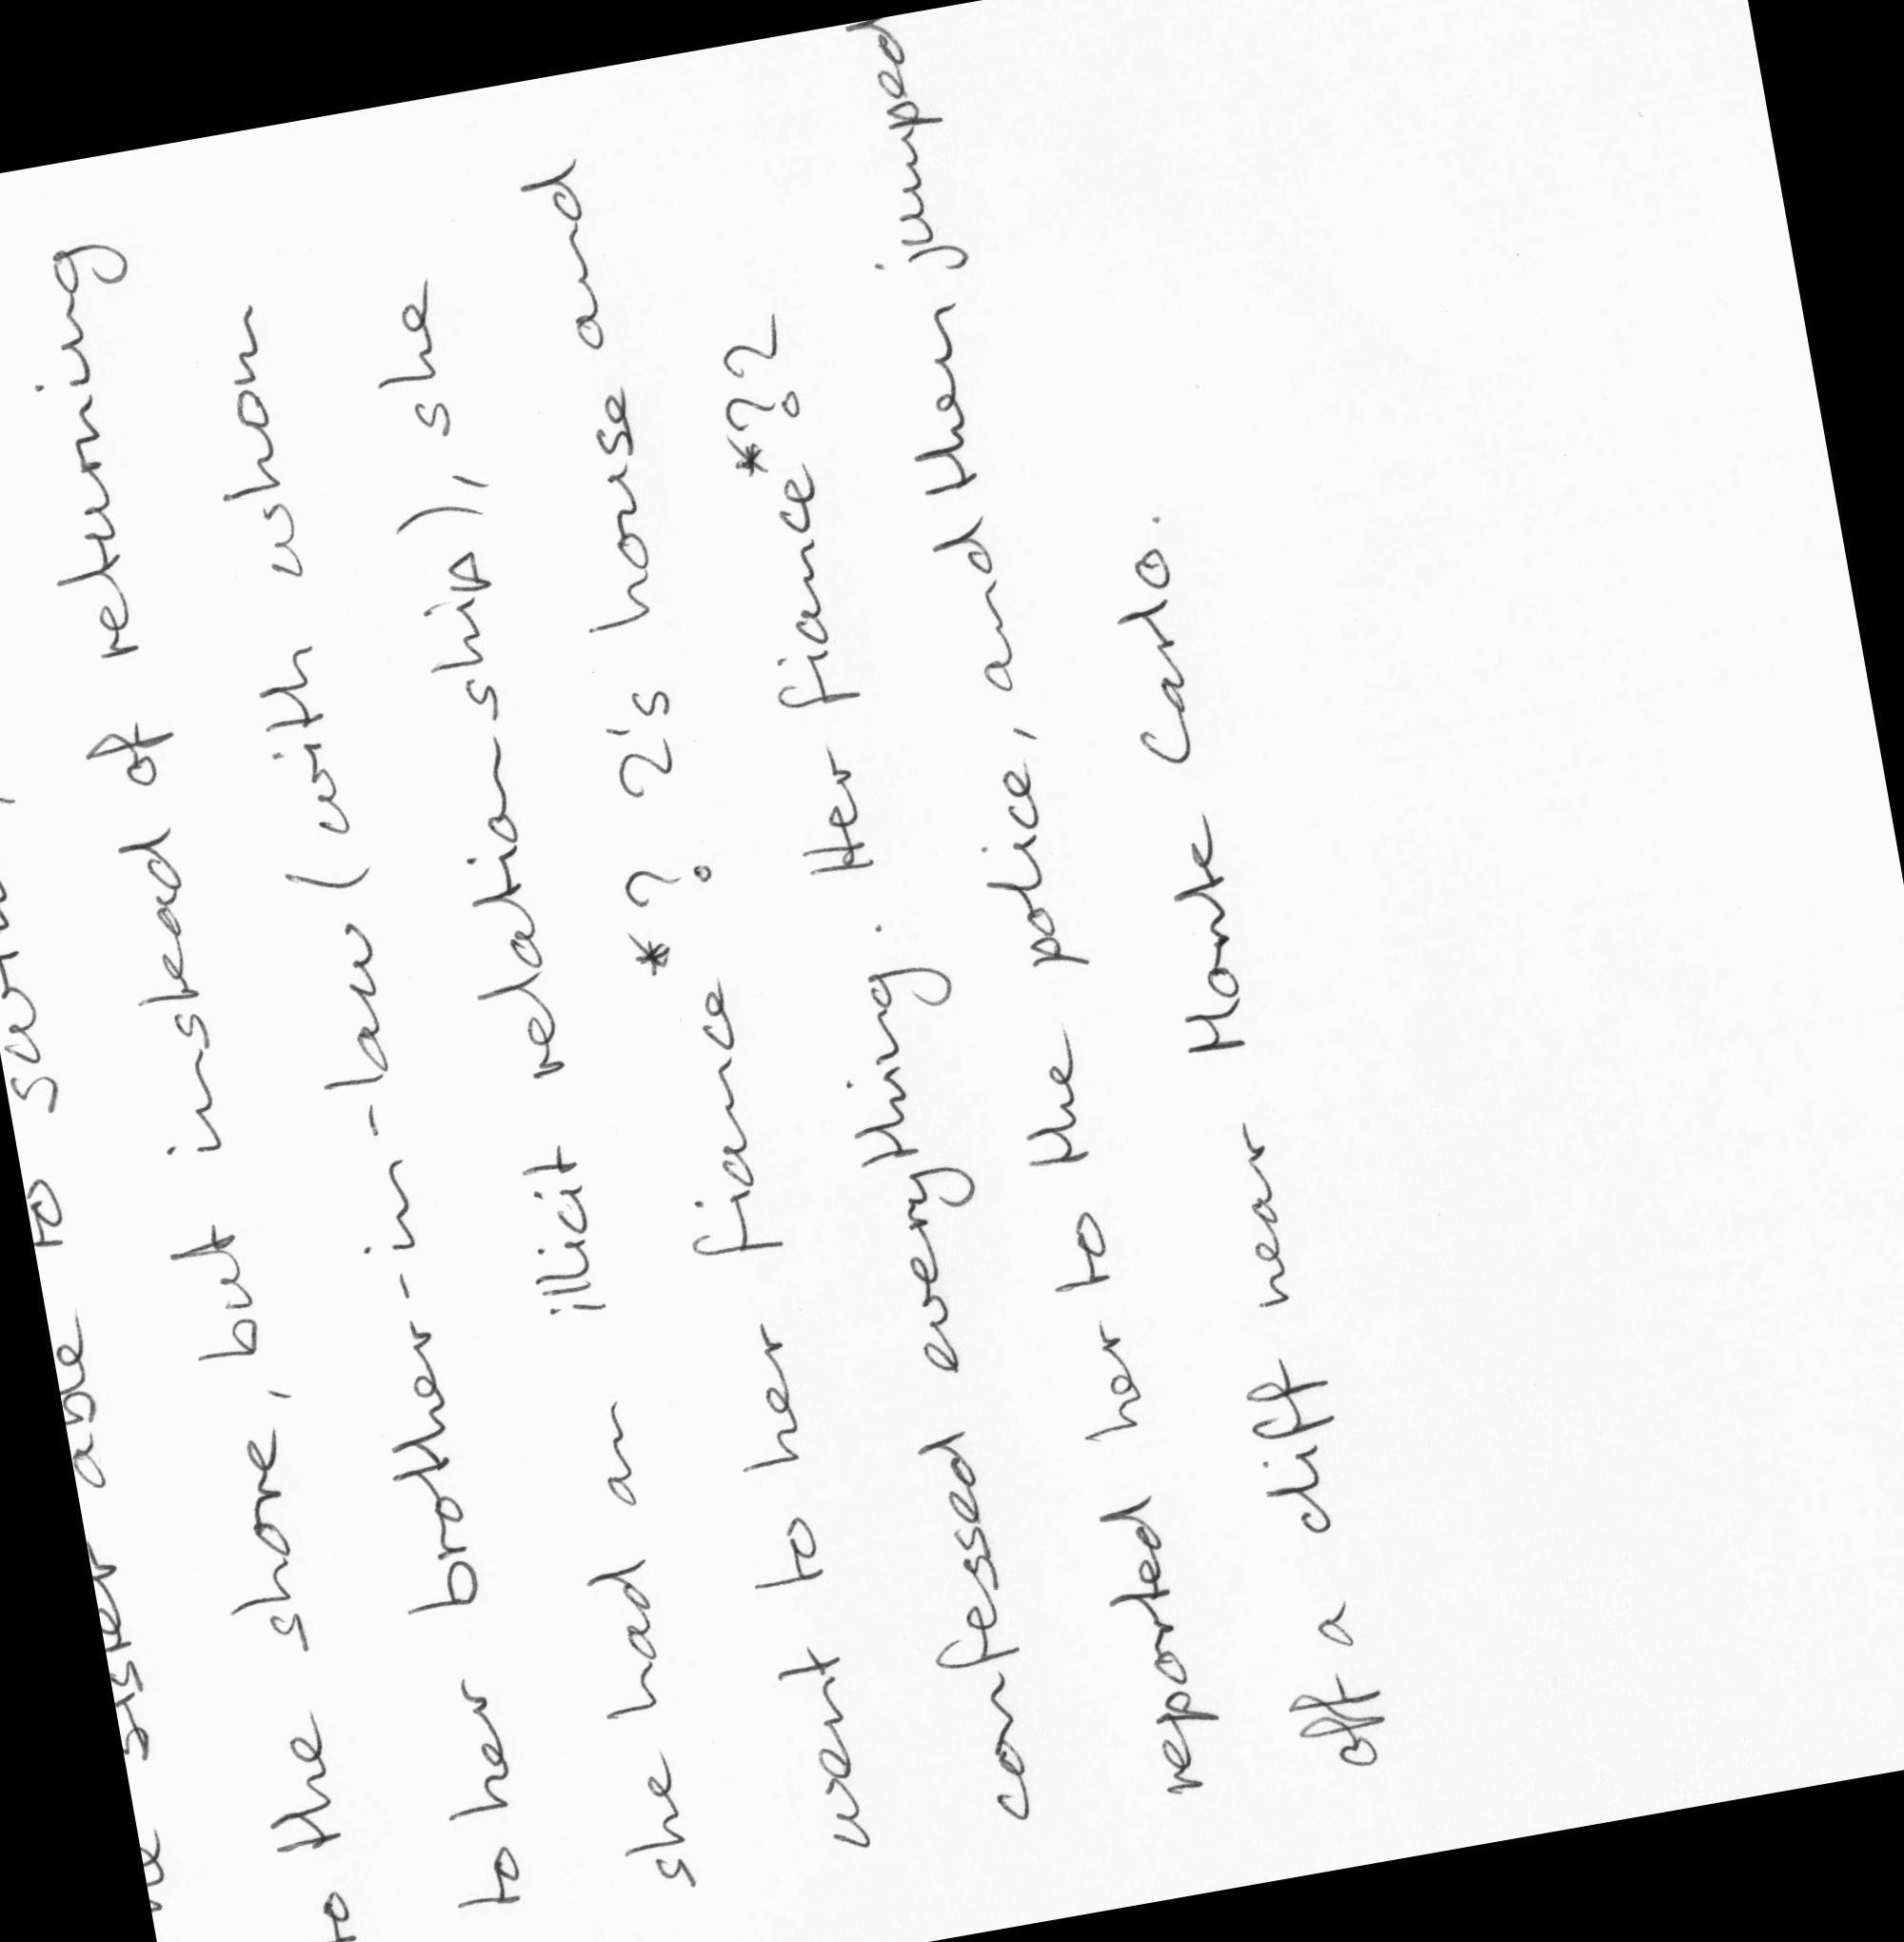 sister able to
to the shore, but instead of returning
to her brother-in-law (with whom
she had an illicit relation-ship), she
went to her fiance *? 2's house and
confessed everything. Her fiance *? 2
reported her to the police, and then jumped
off a cliff near Monte Carlo.